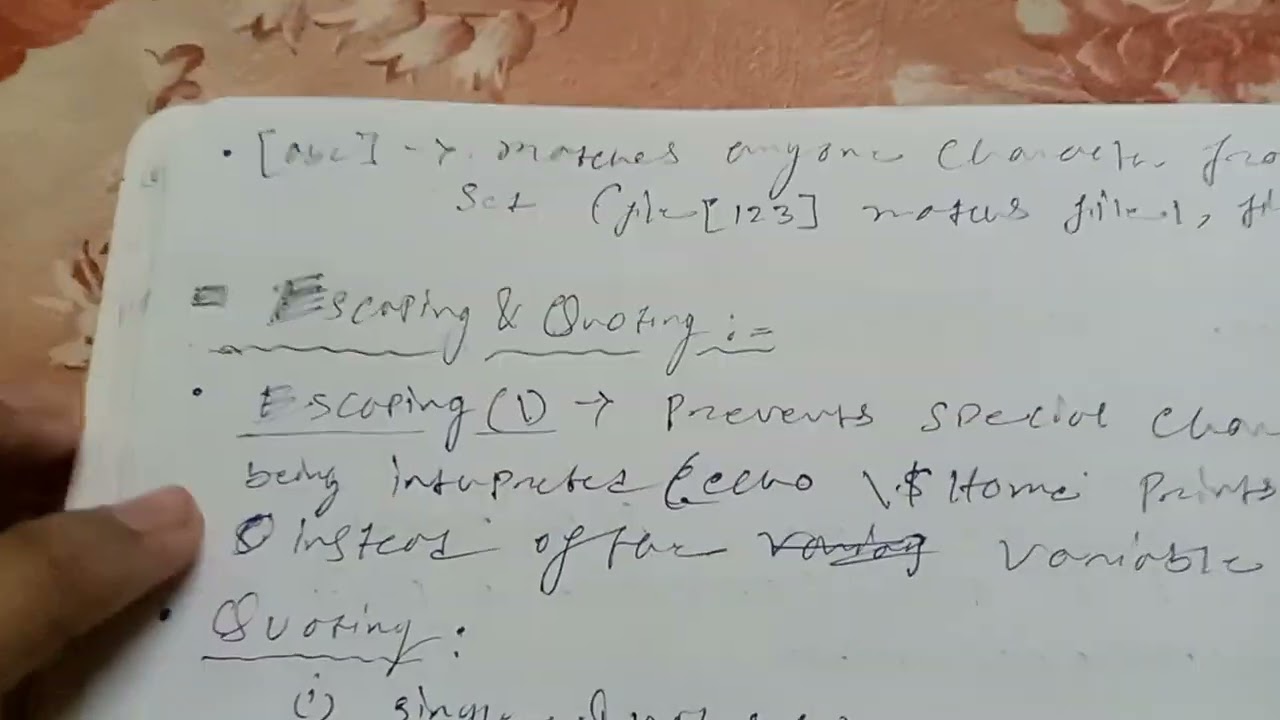 • [abc] → matches anyone character fro
set (file[123] matces file1, fi
Escaping & Quoting :=
• Escaping (\) → Prevents special cha
being interpreted (echo \$Home Prints
instead of the variable
• Quoting :
(i) single